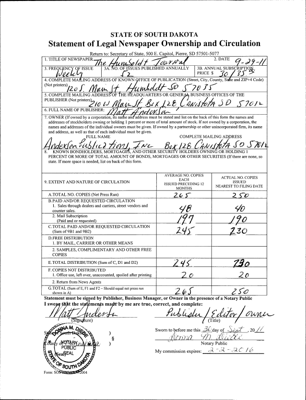 STATE OF SOUTH DAKOTA
Statement of Legal Newspaper Ownership and Circulation
Return to: Secretary of State, 500 E. Capitol, Pierre, SD 57501-5077
1. TITLE OF NEWSPAPER The Humboldt Journal 2. DATE 9-29-11
3. FREQUENCY OF ISSUE Weekly
3A. NO. OF ISSUES PUBLISHED ANNUALLY 52
3B. ANNUAL SUBSCRIPTION PRICE $
4. COMPLETE MAILING ADDRESS OF KNOWN OFFICE OF PUBLICATION (Street, City, County, State and ZIP+4 Code)
(Not printers) Main St Humboldt SD 57035
5. COMPLETE MAILING ADDRESS OF THE HEADQUARTERS OR GENERAL BUSINESS OFFICES OF THE
PUBLISHER (Not printer) Main St Box 128 Canistota SD 57012
6. FULL NAME OF PUBLISHER: Matt Anderson
7. OWNER (If owned by a corporation, its name and address must be stated and
addresses of stockholders owning or holding 1 percent or more of total amount of stock. If not owned by a corporation, the
names and addresses of the individual owners must be given. If owned by a partnership or other unincorporated firm, its name
and address, as well as that of each individual must be given.
FULL NAME COMPLETE MAILING ADDRESS
Anderson Publications, Inc Box 128 Canistota SD 57012
8. KNOWN BONDHOLDERS, MORTGAGEES, AND OTHER SECURITY HOLDERS OWNING OR HOLDING 1
PERCENT OR MORE OF TOTAL AMOUNT OF BONDS, MORTGAGES OR OTHER SECURITIES (If there are none, so
state. If more space is needed, list on back of this form.
9. EXTENT AND NATURE OF CIRCULATION
AVERAGE NO. COPIES EACH ISSUED PRECEDING 12 MONTHS
ACTUAL NO. COPIES ISSUED NEAREST TO FILING DATE
A.TOTAL NO. COPIES (Net Press Run) 265 250
B.PAID AND/OR REQUESTED CIRCULATION
1. Sales through dealers and carriers, street vendors and
counter sales 48 40
2. Mail Subscription
(Paid and or requested) 197 190
C.TOTAL PAID AND/OR REQUESTED CIRCULATION
(Sum of 9B1 and 9B2) 245 230
D.FREE DISTRIBUTION
1. BY MAIL, CARRIER OR OTHER MEANS
2. SAMPLES, COMPLIMENTARY AND OTHER FREE
COPIES
E. TOTAL DISTRIBUTION (Sum of C, D1 and D2) 245 230
F. COPIES NOT DISTRIBUTED
1. Office use, left over, unaccounted, spoiled after printing 20 20
2. Return from News Agents
G.TOTAL (Sum of E, F1 and F2 - Should equal net press run
shown in A) 265 250
Statement must be signed by Publisher, Business Manager, or Owner in the presence of a Notary Public
I swear that the statements made by me are true, correct, and complete:
Matt Anderson Publisher/Editor/owner
(Signature) (Title)
Sworn to before me this day of Sept. 2011
Notary Public
My commission expires:
NOTARY
PUBLIC
SEAL
SOUTH DAKOTA